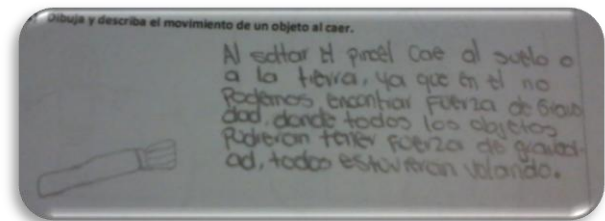 Dibuja y describa el movimiento de un objeto al caer.
Al soltar el pincel cae al suelo o
a la tierra, ya que en el no
Podemos encontrar Fuerza de Grave
dad, donde todos los objetos
Pudieran tener fuerza de graved-
ad, todos estuvieran volando.